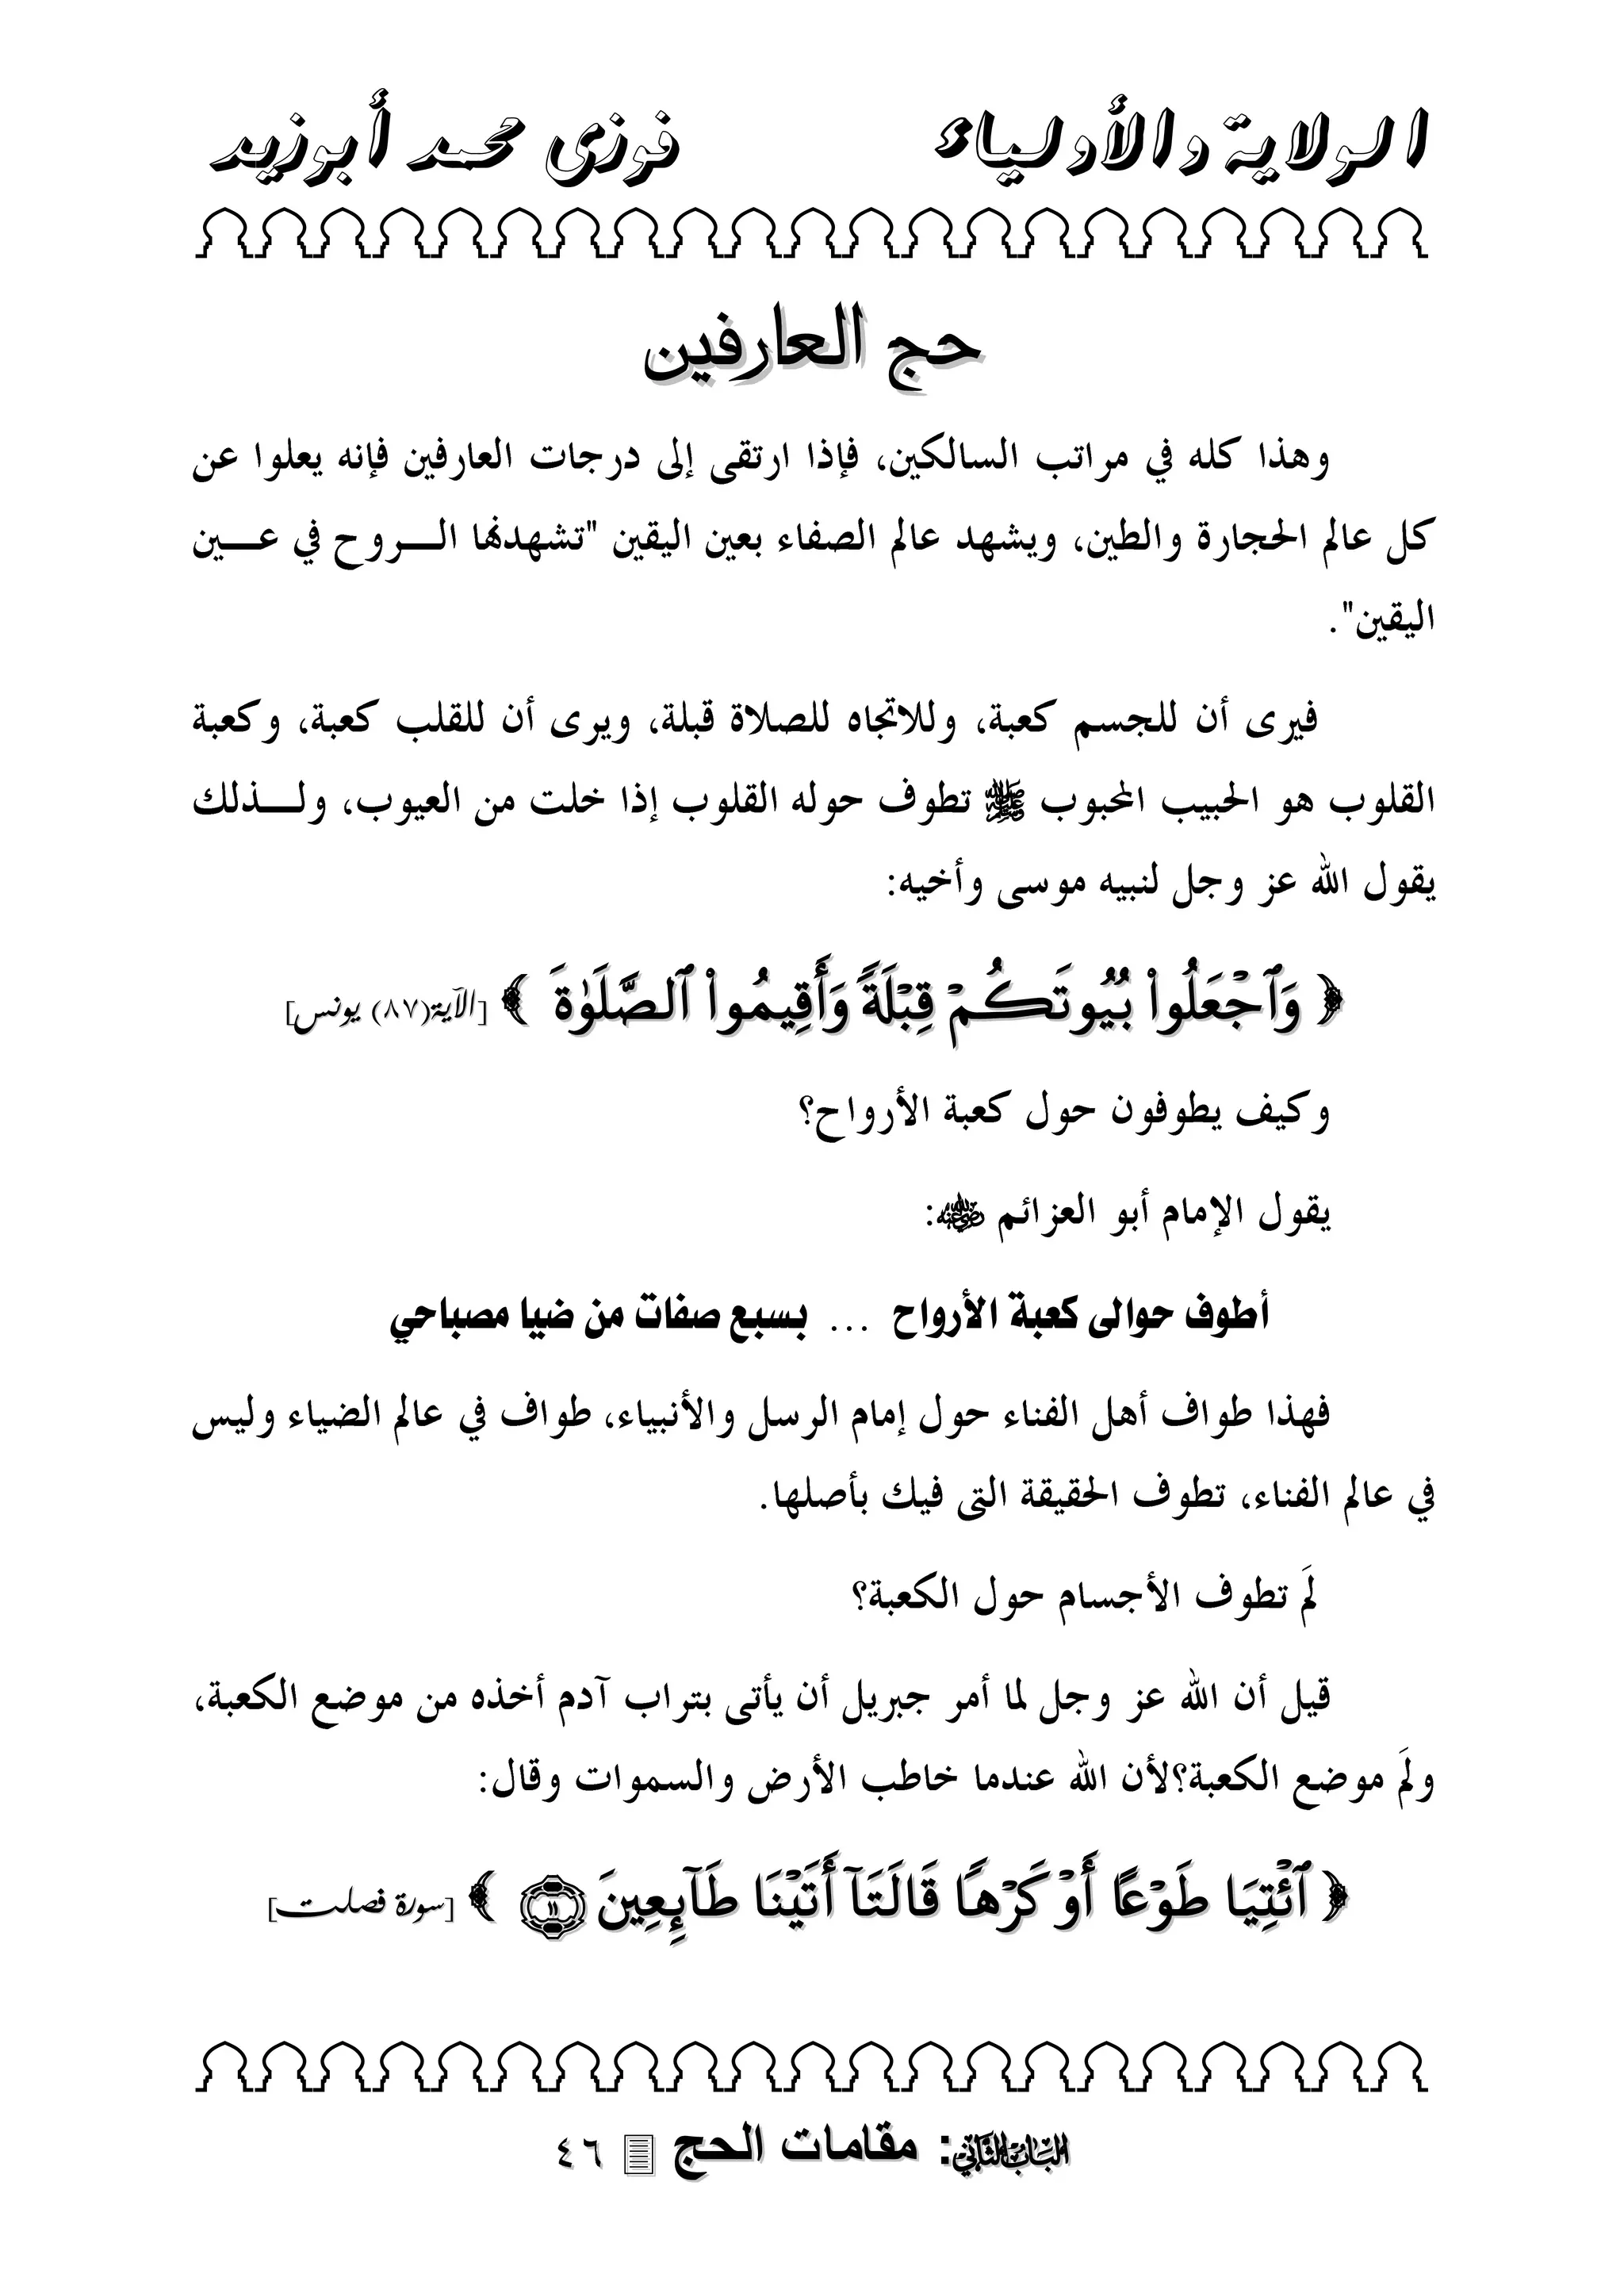 الولاية والأولياء فوزى محمد أبوزيد
حج العارفين
وهذا كله في مراتب السالكين، فإذا ارتقى إلى درجات العارفين فإنه يعلوا عن
كل عالم الحجارة والطين، ويشهد عالم الصفاء بعين اليقين "تشهدنها الروح في عين
اليقين".
فيرى أن للجسم كعبة، وللاتجاه للصلاة قبلة، ويرى أن للقلب كعبة، وكعبة
القلوب هو الحبيب المحبوب ﷺ تطوف حوله القلوب إذا خلت من العيوب، ولذلك
يقول الله عز وجل لنبيه موسى وأخيه:
﴿ وَٱجْعَلُوا۟ بُيُوتَكُمْ قِبْلَةً وَأَقِيمُوا۟ ٱلصَّلَوٰةَ ﴾ [الآية(٨٧) يونس]
وكيف يطوفون حول كعبة الأرواح؟
يقول الإمام أبو العزائم رضي الله عنه:
أطوف حوالى كعبة الأرواح ... بسبع صفات من ضيا مصباحي
فهذا طواف أهل الفناء حول إمام الرسل والأنبياء، طواف في عالم الضياء وليس
في عالم الفناء، تطوف الحقيقة التى فيك بأصلها.
لمَ تطوف الأجسام حول الكعبة؟
قيل أن الله عز وجل لما أمر جبريل أن يأتى بتراب آدم أخذه من موضع الكعبة،
ولمَ موضع الكعبة؟لأن الله عندما خاطب الأرض والسموات وقال:
﴿ ٱئْتِيَا طَوْعًا أَوْ كَرْهًا قَالَتَآ أَتَيْنَا طَآئِعِينَ ١١ ﴾ [سورة فصلت]
الباب الثاني: مقامات الحج ٤٦